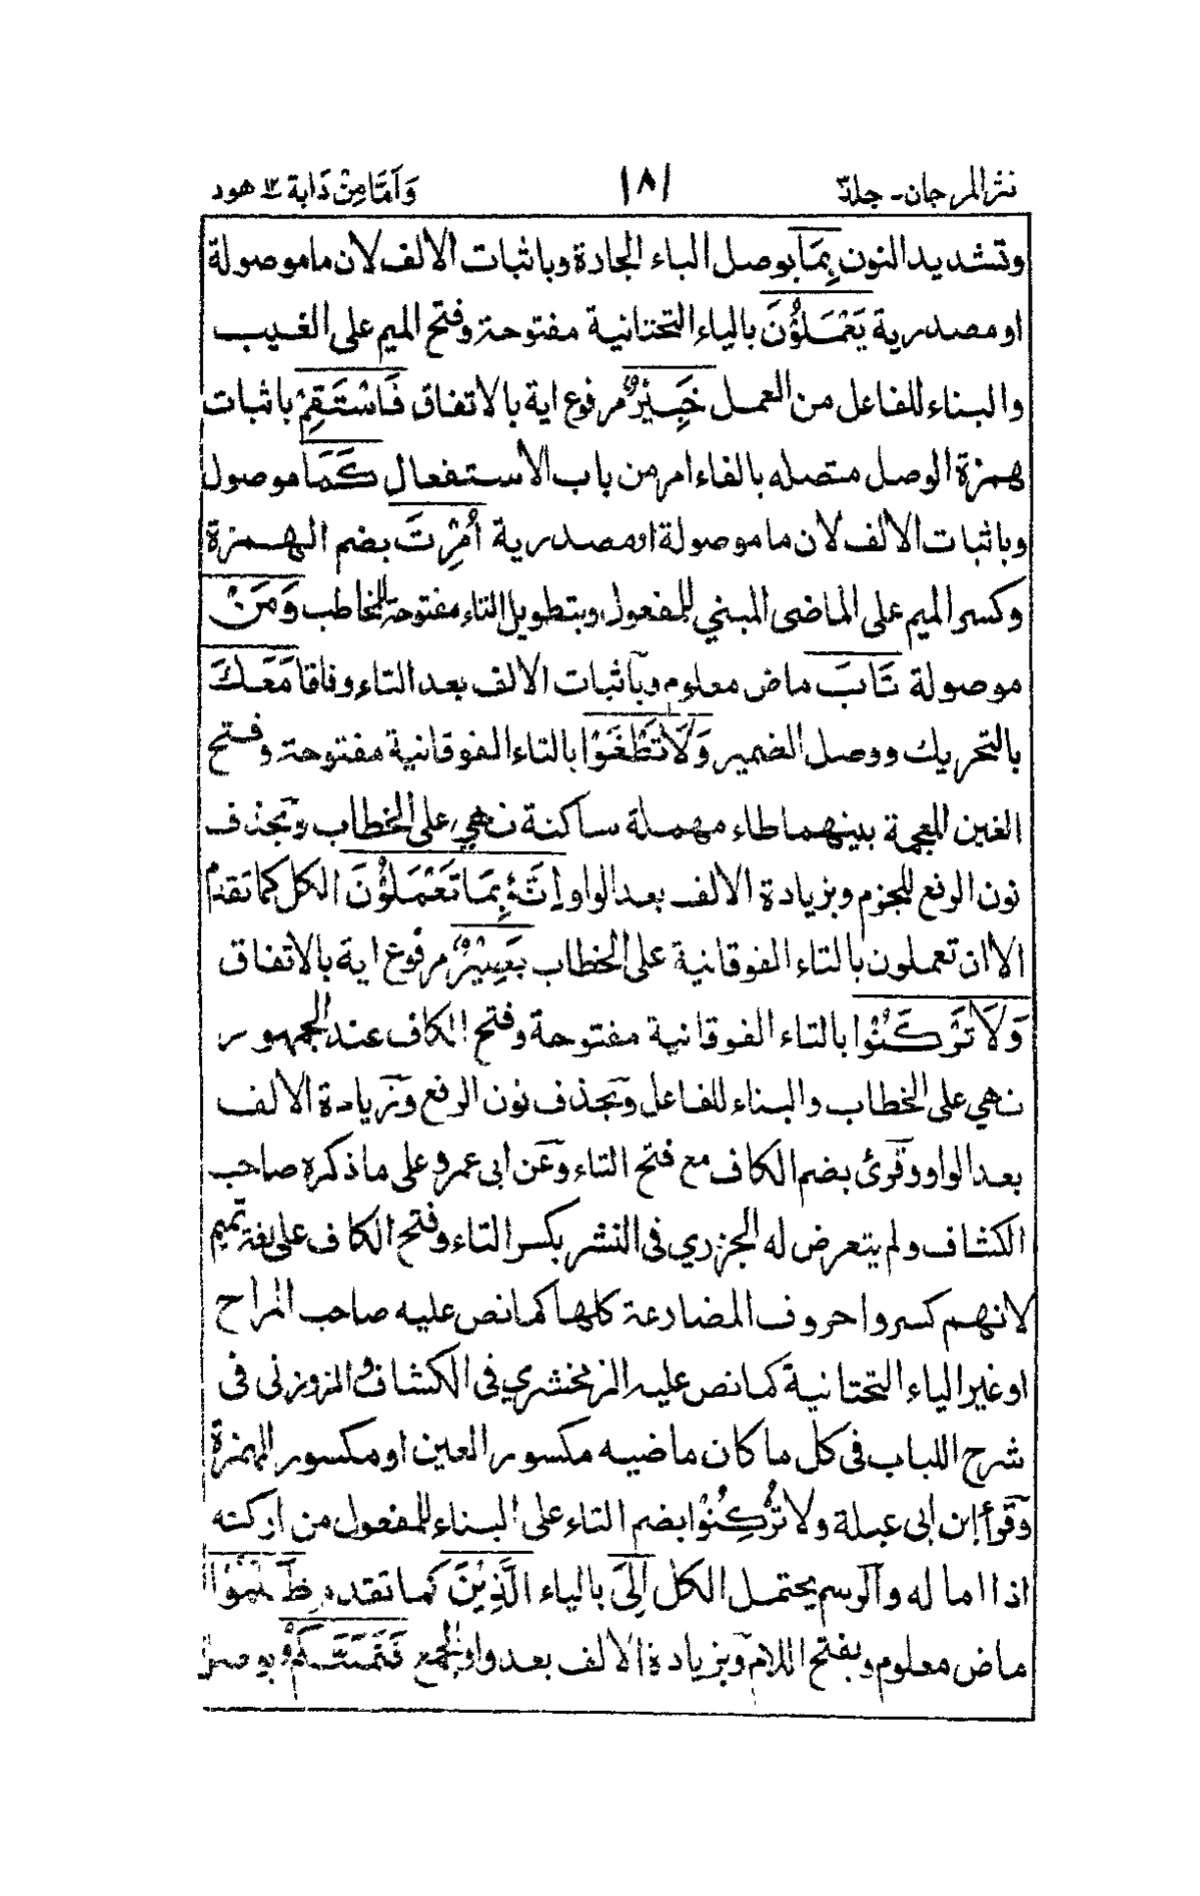 نثر المرجان - جلد٣ ١٨١ وَمَا مِنْ دَابة ١٢ هود
وتشديد النون بِمَا بوصل الباء الجارة وباثبات الالف لان ما موصولة
او مصدرية يَعْمَلُوْنَ بالياء التحتانية مفتوحة وفتح الميم على الغيب
والبناء للفاعل من العمل خَبِيْرٌ مرفوع اية بالاتفاق فَاسْتَقِمْ باثبات
همزة الوصل متصله بالفاء امر من باب الاستفعال كَمَا موصول
وباثبات الالف لان ما موصولة او مصدرية اُمِرْتَ بضم الهمزة
وكسر الميم على الماضى المبني للمفعول وبتطويل التاء مفتوحة للمخاطب وَمَنْ
موصولة تَابَ ماض معلوم وباثبات الالف بعد التاء وفاقا مَعَكَ
بالتحريك ووصل الضمير وَلَا تَطْغَوْا بالتاء الفوقانية مفتوحة وفتح
الغين المعجمة بينهما طاء مهملة ساكنة نهي على الخطاب وبحذف
نون الرفع للجزم وبزيادة الالف بعد الواو اِنَّهٗ بِمَا تَعْمَلُوْنَ الكل كما تقدم
الا ان تعملون بالتاء الفوقانية على الخطاب بَصِيْرٌ مرفوع اية بالاتفاق
وَلَا تَرْكَنُوْا بالتاء الفوقانية مفتوحة وفتح الكاف عند الجمهور
نهي على الخطاب والبناء للفاعل وبحذف نون الرفع وبزيادة الالف
بعد الواو وقرئ بضم الكاف مع فتح التاء وعن ابى عمرو على ما ذكره صاحب
الكشاف ولم يتعرض له الجزري فى النشر بكسر التاء وفتح الكاف على لغة تميم
لانهم كسروا حروف المضارعة كلها كما نص عليه صاحب المراح
او غير الياء التحتانية كما نص عليه الزمخشري فى الكشاف والزوزنى فى
شرح اللباب فى كل ما كان ماضيه مكسور العين او مكسور الهمزة
وقرأ ابن ابى عبلة ولا تُرْكِنُوْا بضم التاء على البناء للمفعول من اركنه
اذا اماله والرسم يحتمل الكل اِلَى بالياء الَّذِيْنَ كما تقدم ظَلَمُوْا
ماض معلوم وبفتح اللام وبزيادة الالف بعد واو الجمع فَتَمَسَّكُمْ بوصل